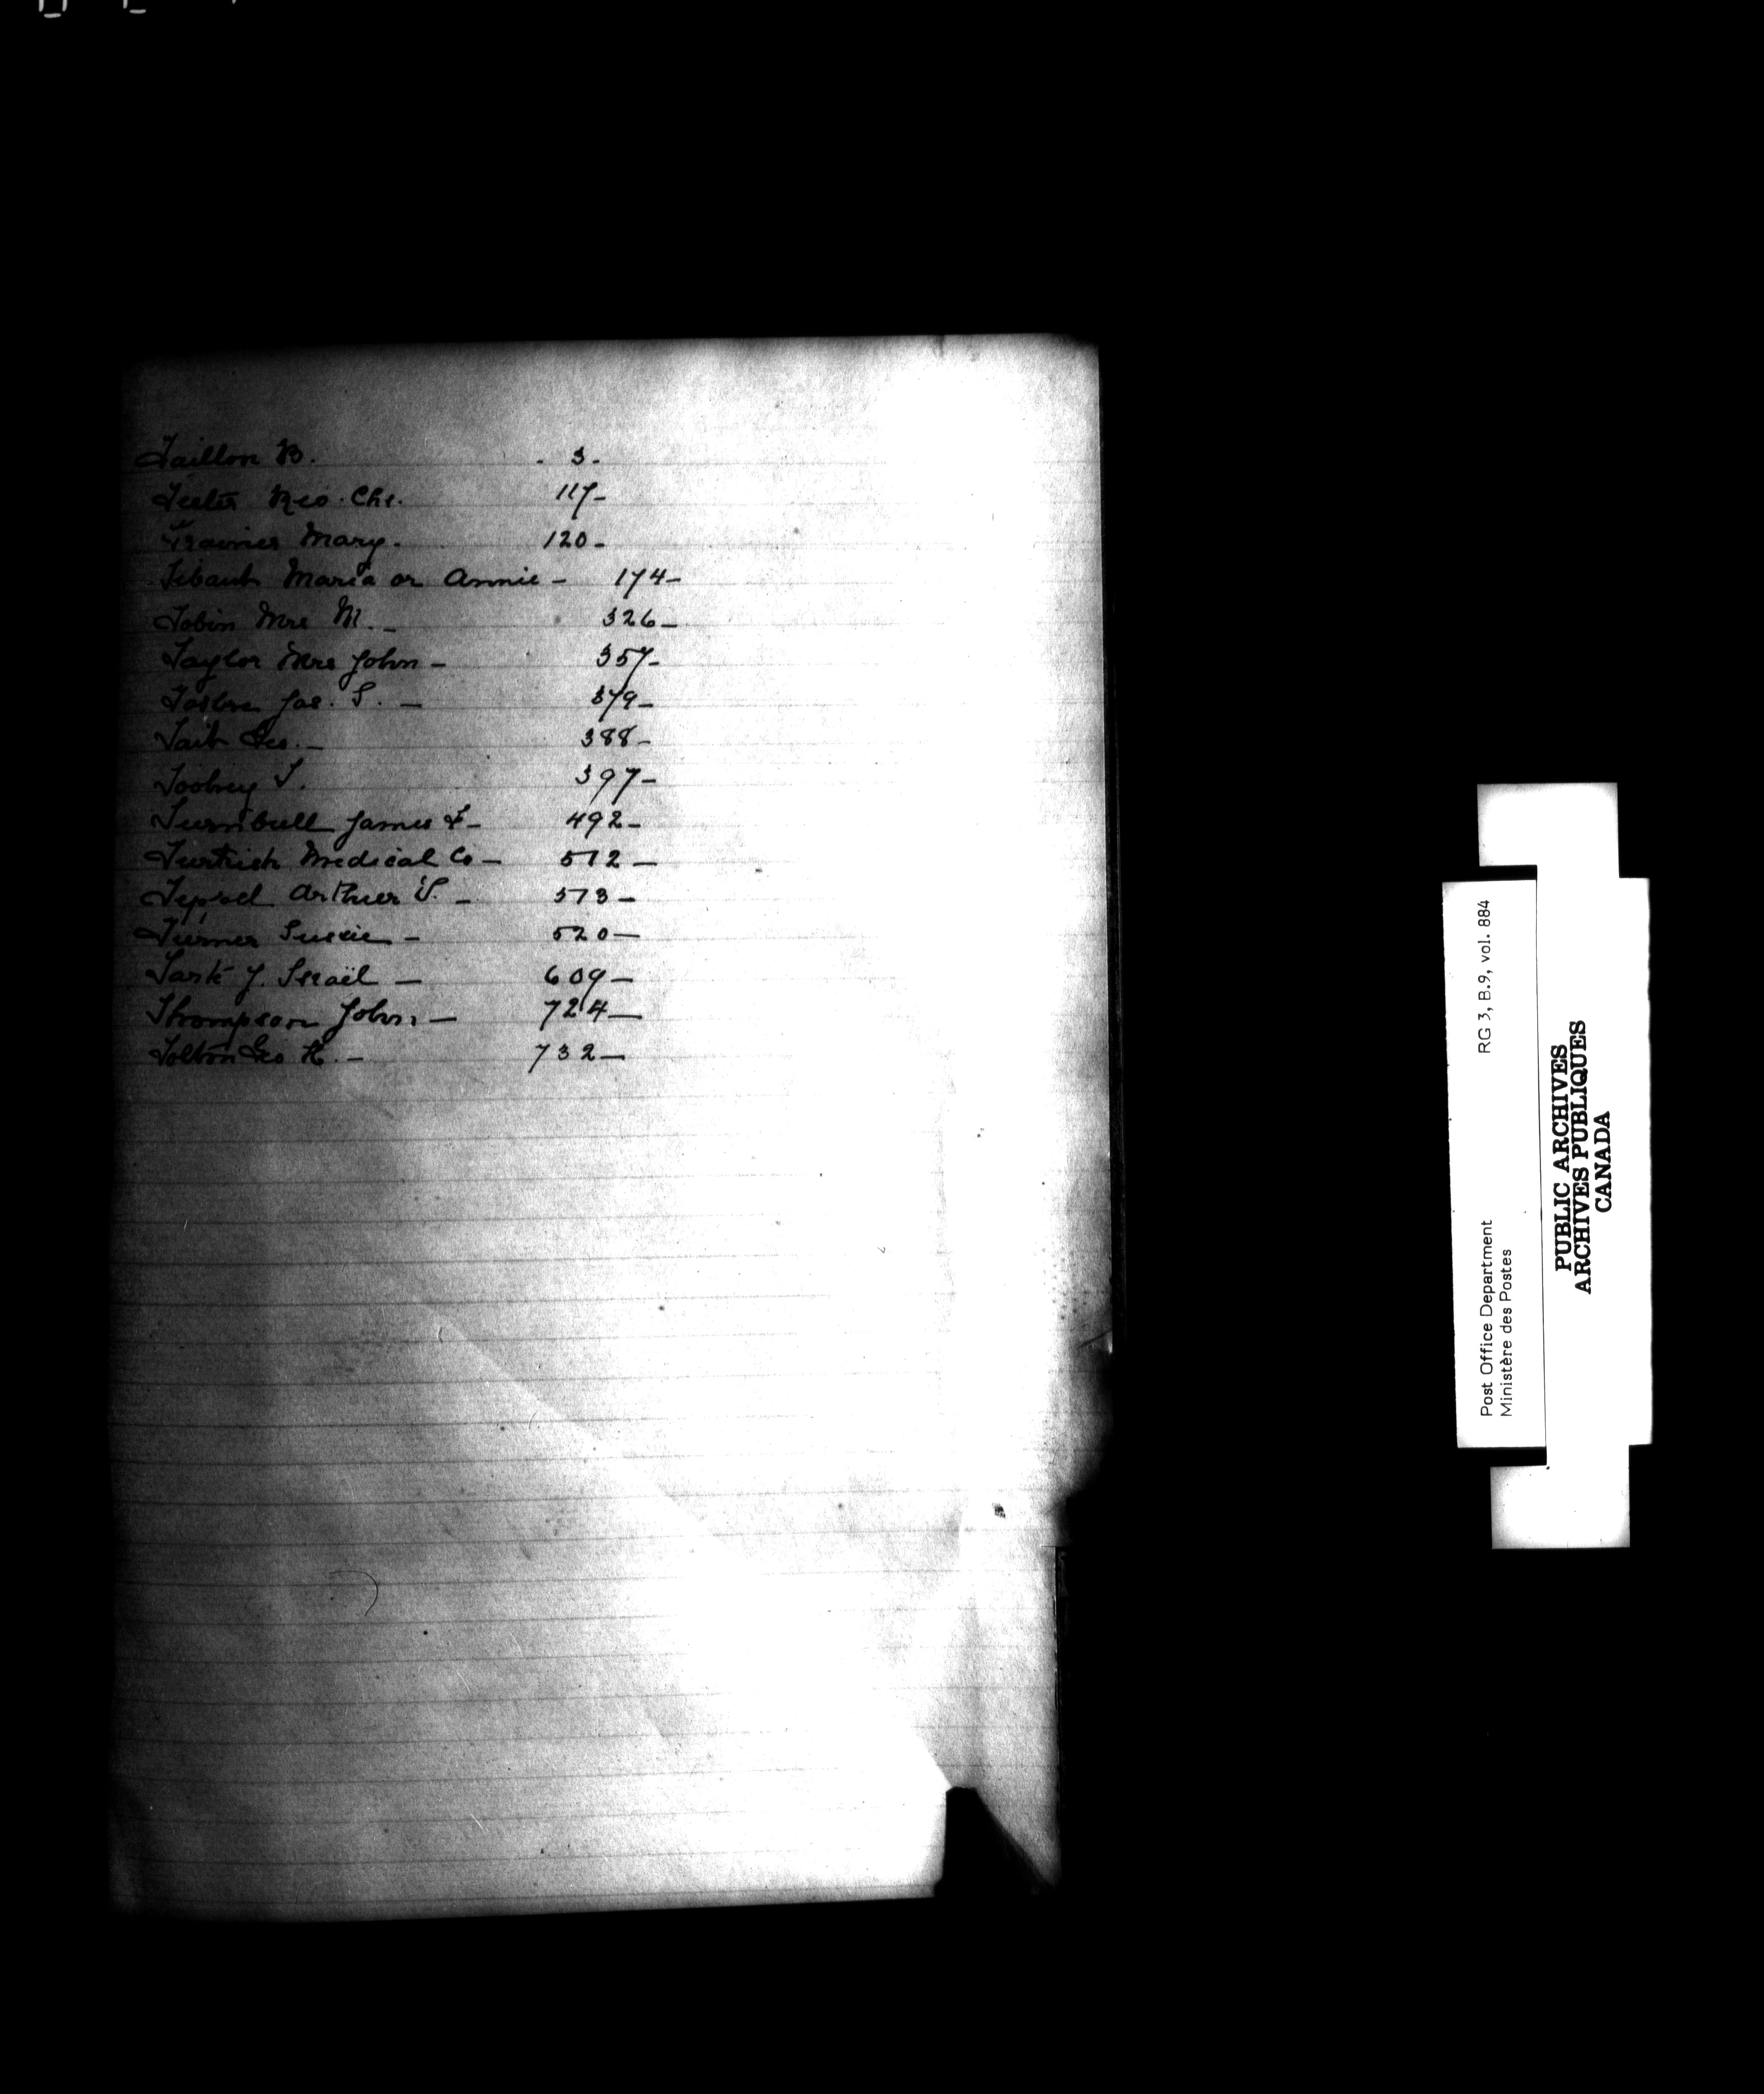 Taillon B. - 3 -
Teeter Geo. Chs. 117 -
Trainer Mary. 120 -
Tebault Maria or Annie - 174 -
Tobin Mrs M. - 326 -
Taylor Mrs John - 357 -
Jas. S. - 379 -
Tait Geo. - 388 -
Toohey T. 397 -
Turnbull James F - 492 -
Turkish Medical Co - 512 -
Arthur S. - 513 -
Turner Susie - 520 -
J. Israël - 609 -
Thompson John - 724 -
Tolton Geo H. - 732 -
Post Office Department RG 3, B.9, vol. 884
Ministère des Postes
PUBLIC ARCHIVES
ARCHIVES PUBLIQUES
CANADA